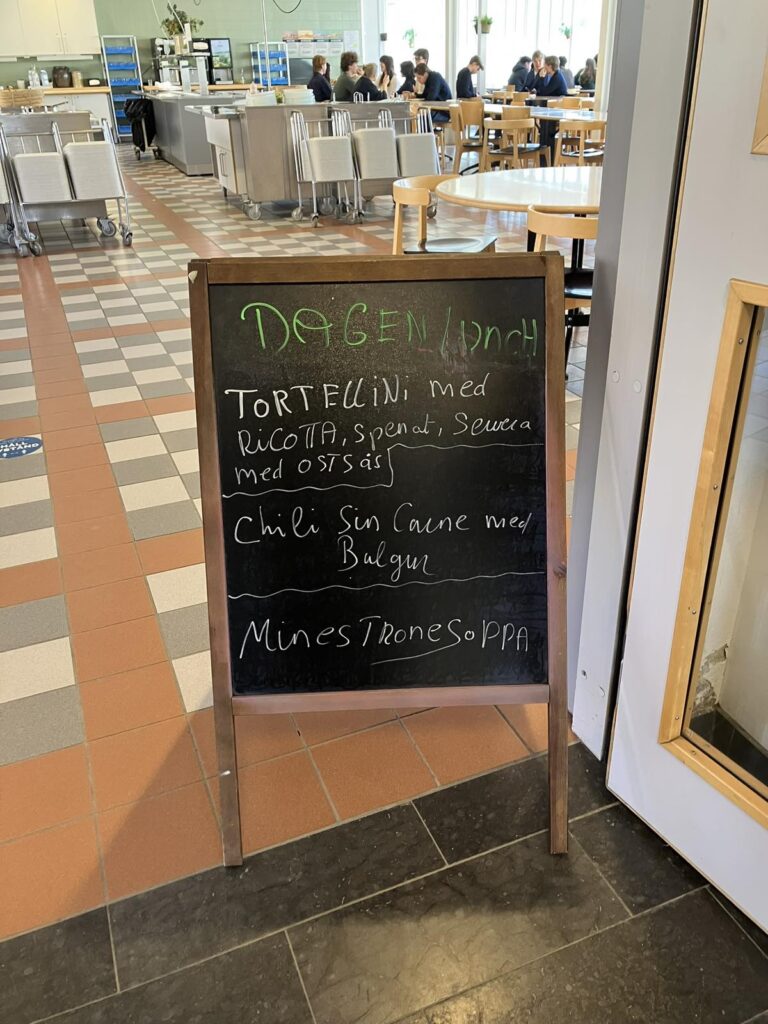 DAGEN lunch
TORTELLINI med
RICOTTA, spenat, Serrera
med OSTSÅS
Chili Sin Carne med
Bulgur
MINESTRONESOPPA
HÅLL
AVSTAND